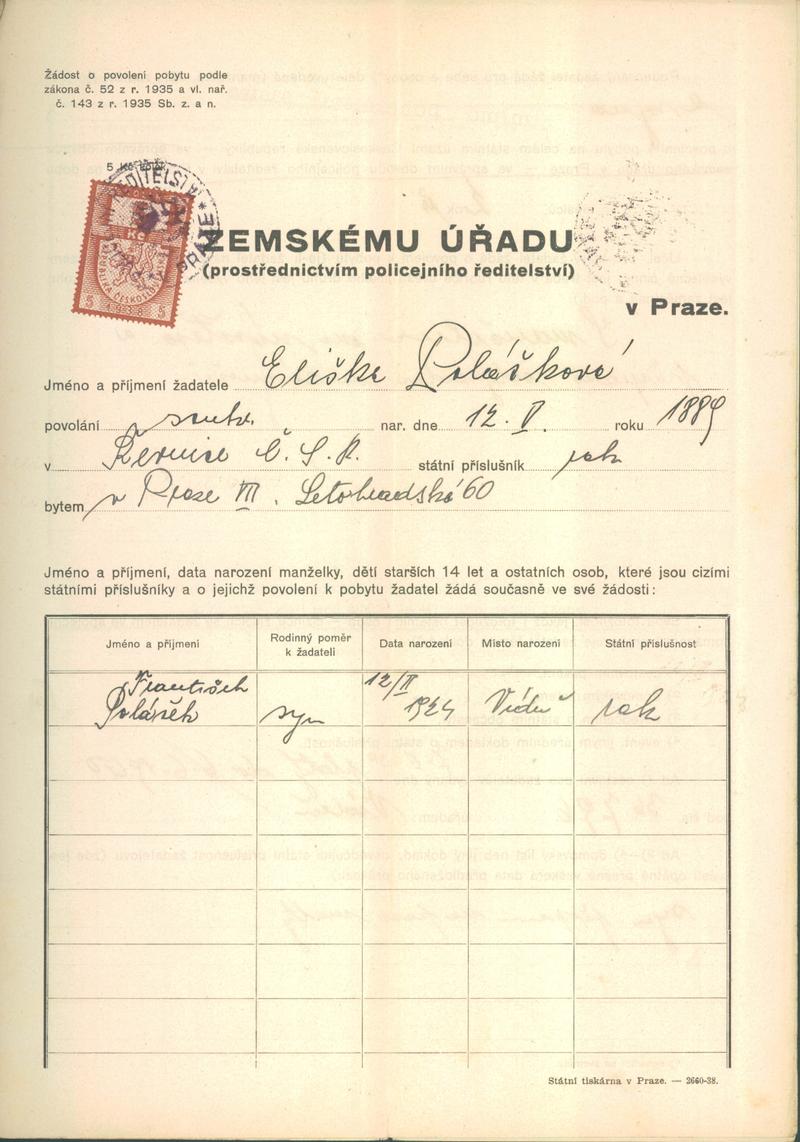 Žádost o povolení pobytu podle
zákona č. 52 z r. 1935 a vl. nař.
č. 143 z r. 1935 Sb. z. a n.
5 Kč kolek
ZEMSKÉMU ÚŘADU
(prostřednictvím policejního ředitelství)
v Praze.
Jméno a příjmení žadatele Eliška Polášková
povolání soukr. nar. dne 12. V. roku 1889
v Č. S. R. státní příslušník rak
bytem v Praze VII, Letohradská 60
Jméno a příjmení, data narození manželky, dětí starších 14 let a ostatních osob, které jsou cizími
státními příslušníky a o jejichž povolení k pobytu žadatel žádá současně ve své žádosti:
Jméno a příjmení Rodinný poměr k žadateli Data narození Místo narození Státní příslušnost
František Polášek syn 12/II 1924 Vídeň rak
Státní tiskárna v Praze. — 2660-38.